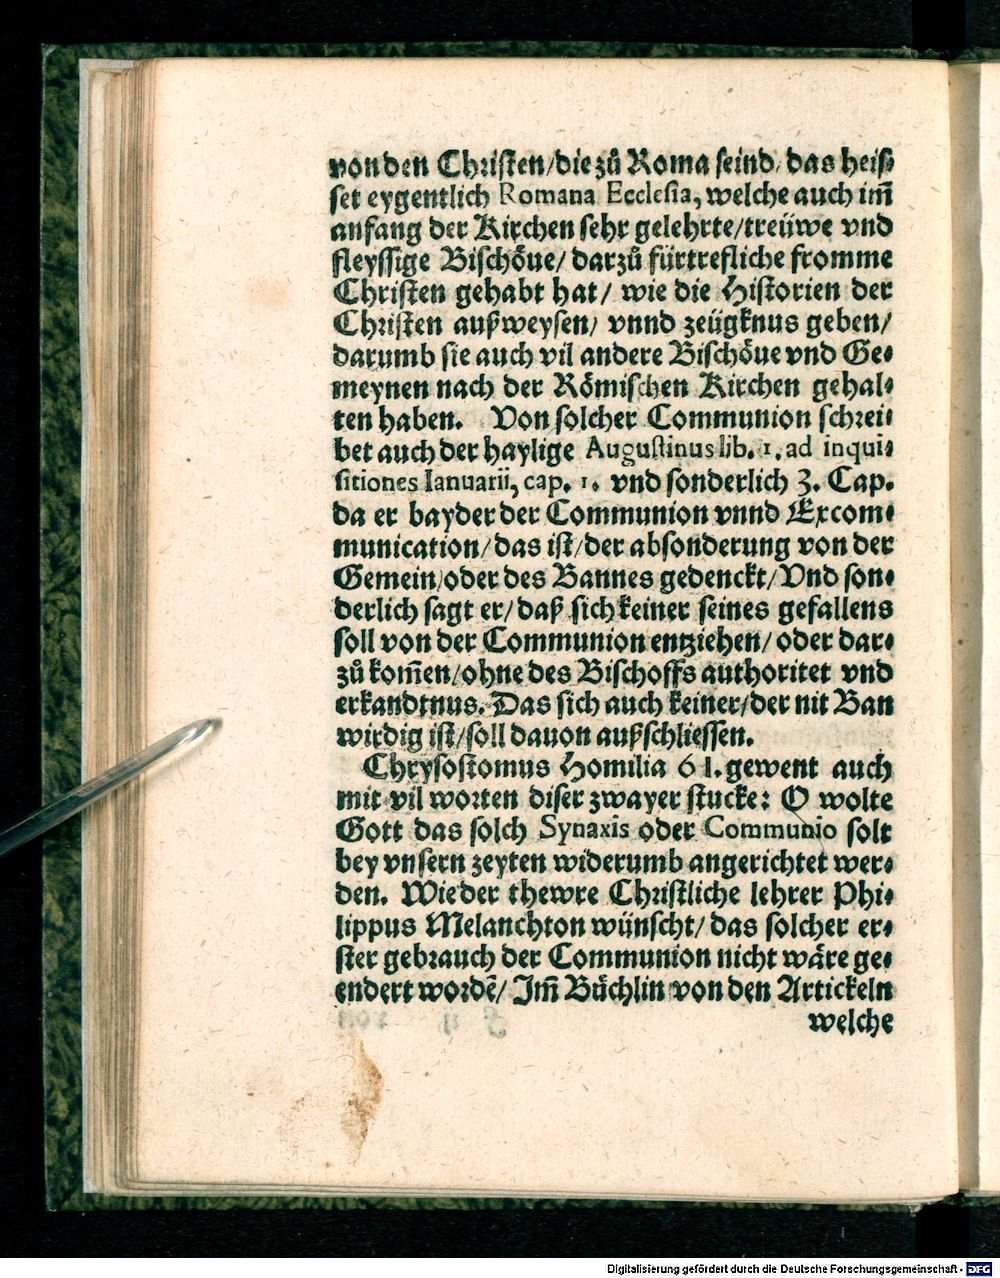 von den Christen/die zů Roma seind/das heis⸗
set eygentlich Romana Ecclesia, welche auch im̃
anfang der Kirchen sehr gelehrte/treüwe vnd
fleyssige Bischöue/ darzů fürtrefliche fromme
Christen gehabt hat/ wie die Historien der
Christen außweysen/ vnnd zeügknus geben/
darumb sie auch vil andere Bischöue vnd Ge⸗
meynen nach der Römischen Kirchen gehal⸗
ten haben. Von solcher Communion schrei⸗
bet auch der haylige Augustinus lib. 1. ad inqui⸗
sitiones Ianuarii, cap. 1. vnd sonderlich 3. Cap.
da er bayder der Communion vnnd Excom⸗
munication/das ist/der absonderung von der
Gemein/oder des Bannes gedenckt/Vnd son⸗
derlich sagt er/daß sich keiner seines gefallens
soll von der Communion entziehen/oder dar⸗
zů kom̃en/ohne des Bischoffs authoritet vnd
erkandtnus. Das sich auch keiner/der nit Ban
wirdig ist/soll dauon außschliessen.
Chrysostomus Homilia 61. gewent auch
mit vil worten diser zwayer stucke: O wolte
Gott das solch Synaxis oder Communio solt
bey vnsern zeyten widerumb angerichtet wer⸗
den. Wie der thewre Christliche lehrer Phi⸗
lippus Melanchton wünscht/das solcher er⸗
ster gebrauch der Communion nicht wäre ge⸗
endert wordē/Im̃ Büchlin von den Artickeln
welche
Digitalisierung gefördert durch die Deutsche Forschungsgemeinschaft - DFG